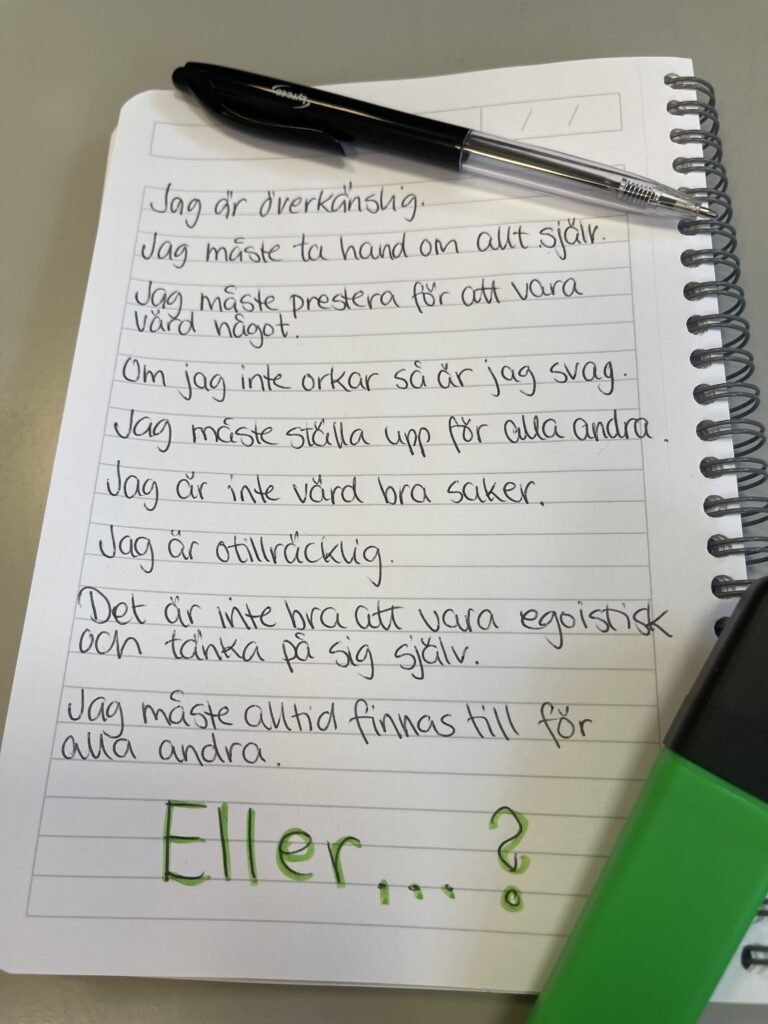 Lyreco
/ /
Jag är överkänslig.
Jag måste ta hand om allt själv.
Jag måste prestera för att vara
värd något.
Om jag inte orkar så är jag svag.
Jag måste ställa upp för alla andra.
Jag är inte värd bra saker.
Jag är otillräcklig.
Det är inte bra att vara egoistisk
och tänka på sig själv.
Jag måste alltid finnas till för
alla andra.
Eller...?